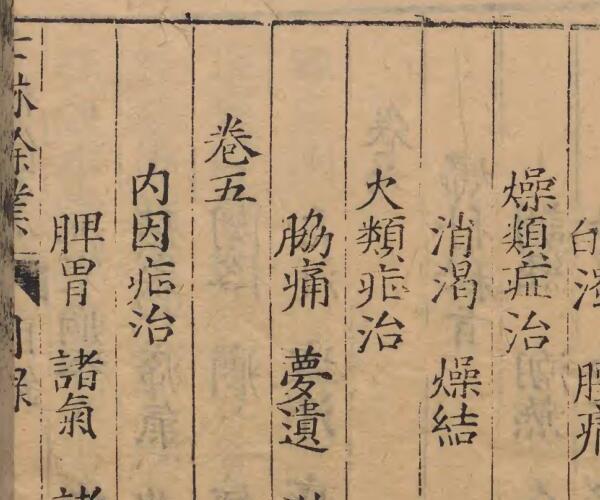 白濁 腫
燥類症治
消渴 燥結
火類症治
脇痛 夢遺
卷五
内因症治
脾胃 諸氣 諸
士林餘業 目錄